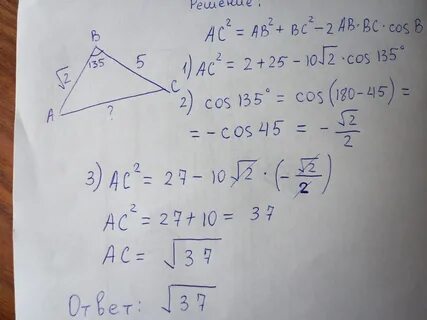 Решение:
AC² = AB² + BC² - 2 AB · BC · cos B
B
135
√2
5
A
C
?
1) AC² = 2 + 25 - 10√2 · cos 135°
2) cos 135° = cos (180 - 45) =
= - cos 45 = - √2/2
3) AC² = 27 - 10√2 · (- √2/2)
AC² = 27 + 10 = 37
AC = √37
Ответ: √37